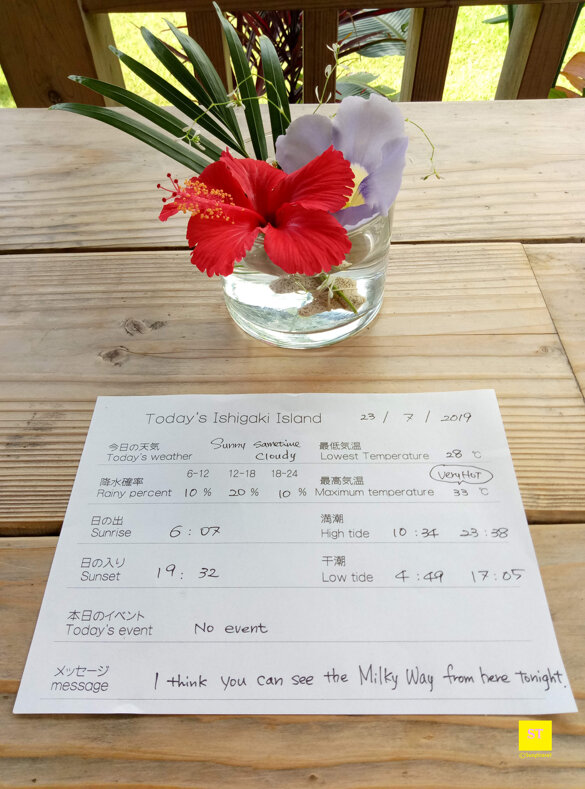 Today's Ishigaki Island 23 / 7 / 2019
今日の天気 Sunny sometime 最低気温
Today's weather Cloudy Lowest Temperature 28 ℃
降水確率 6-12 12-18 18-24 最高気温 Very HoT
Rainy percent 10 % 20 % 10 % Maximum temperature 33 ℃
日の出 満潮
Sunrise 6 : 07 High tide 10 : 34 23 : 38
日の入り 干潮
Sunset 19 : 32 Low tide 4 : 49 17 : 05
本日のイベント
Today's event No event
メッセージ
message I think you can see the Milky Way from here tonight.
ST